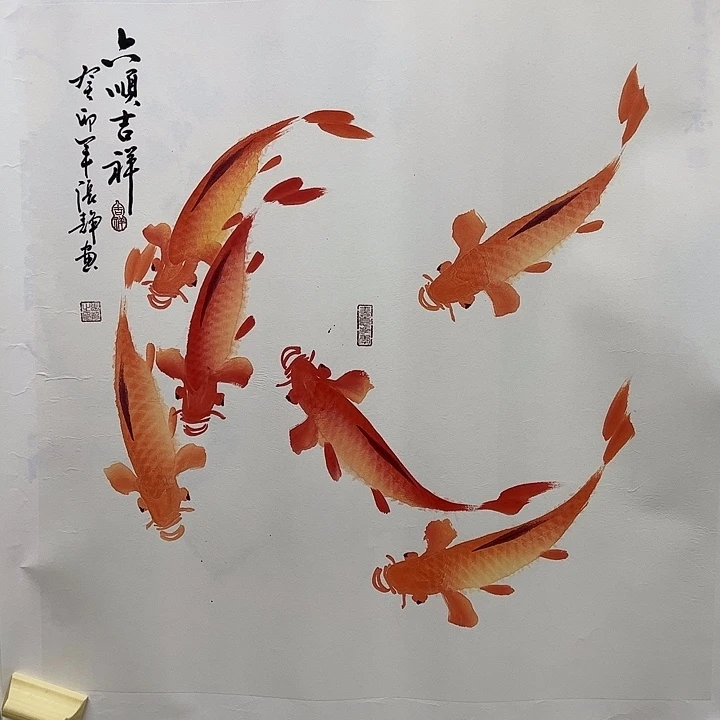 六順吉祥
癸卯年張靜畫